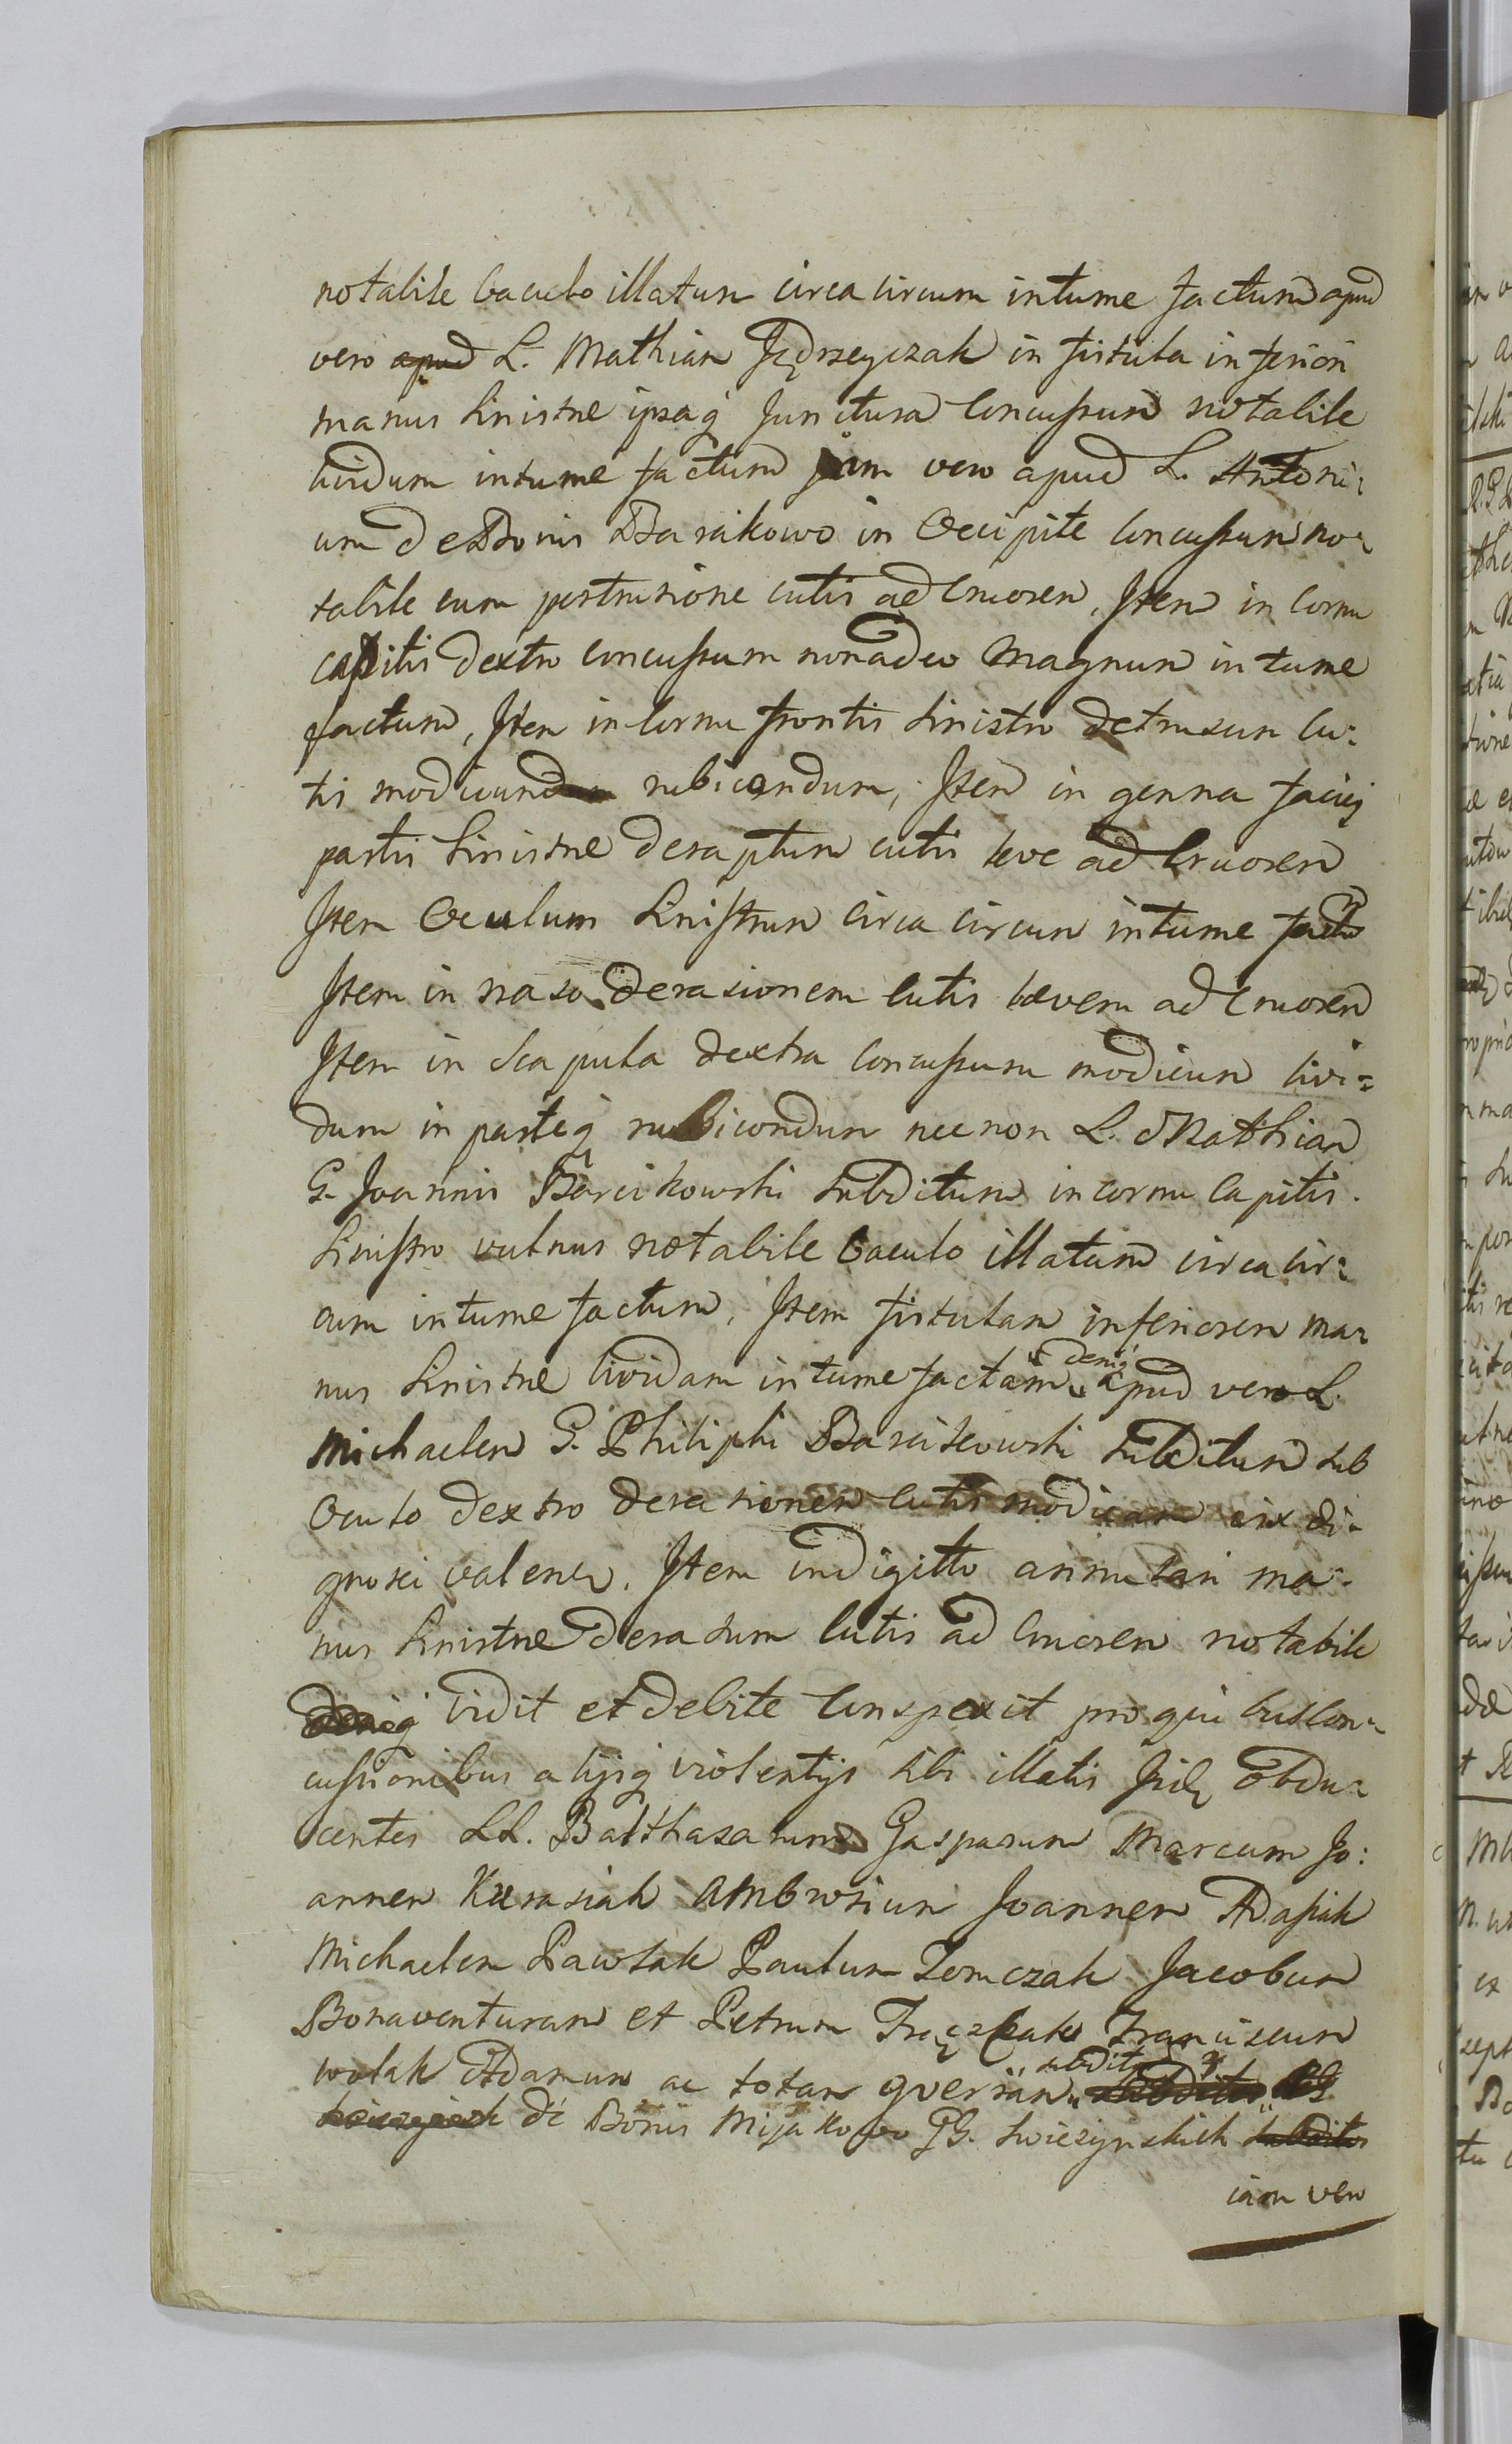 notabile baculo illatum circa circum intume factum apud
vero apud L. Mathiam Jędrzeyczak in fistula inferiori
manus sinistrae ipsaq junctura concussum notabile
lividum intume factum jam vero apud L. Antoni:
um de Bonis Barcikowo in occipite concussum no:
tabile cum pertrusione cutis ad cruorem, Item in cornu
capitis dextro concussum nonadeo magnum intume
factum, Item in cornu frontis sinistro detrusum cu:
tis modicum rubicundum, Item in genna faciej
partis sinistrae deraptum cutis leve ad cruorem
Item oculum sinistrum circa circum intume factu
Item in naso derasionem cutis levem ad cruorem
Item in scapula dextra concussum modicum livi=
dum in parteq rubicondum necnon L. Mathiam
G. Joannis Barcikowski subditum in cornu capitis
sinistro vulnus notabile baculo illatum circa cir:
cum intume factum, Item fistulam inferiorem ma:
nus sinistrae lividam intume factam deniq apud vero L.
Michaelem G. Philiphi Barcikowski subditum sub
oculo dextro derasionem cutis modicam vix di-
gnosci valenem. Item in digitto annulari ma:
nus sinistrae derasum cutis ad cruorem notabile
deniq vidit et debite conspexit pro qui bus con:
cussionibus alijsq violentijs sibi illatis Jidq obdu:
centes LL. Balthasarum Gasparum Marcum Jo:
annem Kurasiak Ambrosium Joannem Adasiak
Michaelem Pawlak Paulum Tomczak Jacobum
Bonaventuram et Petrum Franciscum
wolak Adamum ac totam gverram subditos
de Bonis Mijakowo GG. Swiezynskich subditos
iam vero